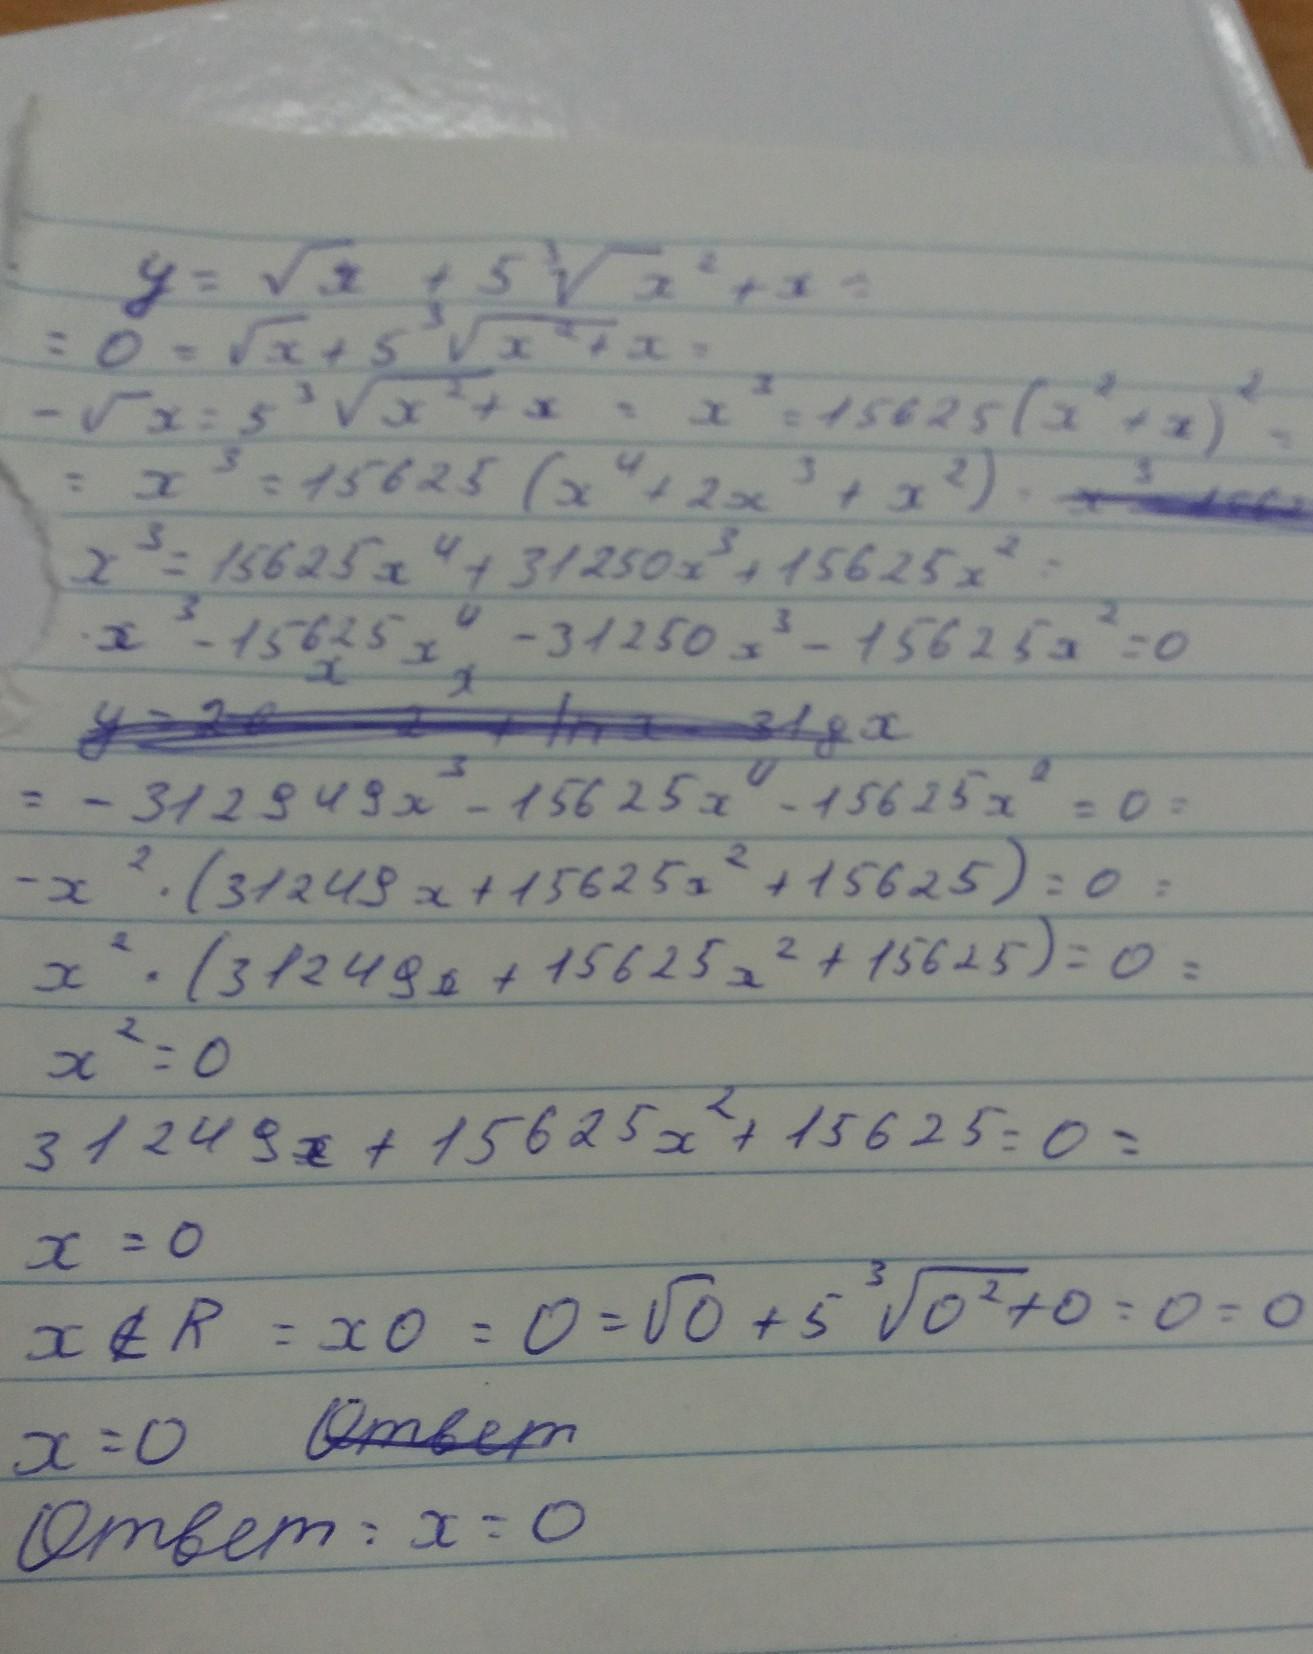 y = √x + 5 ³√x² + x =
= 0 = √x + 5 ³√x² + x =
- √x = 5 ³√x² + x = x³ = 15625 (x² + x)² =
= x³ = 15625 (x⁴ + 2x³ + x²) =
x³ = 15625x⁴ + 31250x³ + 15625x² =
x³ - 15625x⁴ - 31250x³ - 15625x² = 0
= - 312949x³ - 15625x⁴ - 15625x² = 0 =
- x² · (31249x + 15625x² + 15625) = 0 =
x² · (31249x + 15625x² + 15625) = 0 =
x² = 0
31249x + 15625x² + 15625 = 0 =
x = 0
x ∉ R = x0 = 0 = √0 + 5 ³√0² + 0 = 0 = 0
x = 0 Ответ
Ответ: x = 0